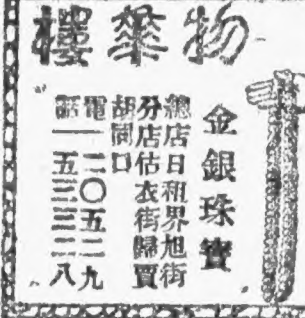 物華樓
金銀珠寶
總店日租界旭街
分店估衣街歸賈
胡同口
電一二〇五二九
話一五三三二八